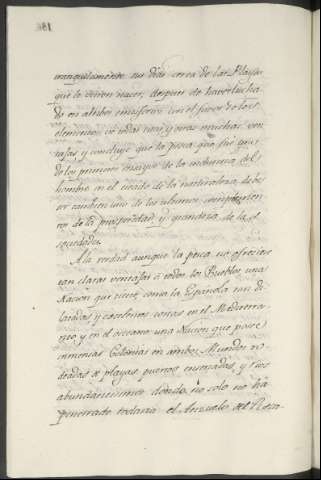 tranquilamente sus dias cerca de las Playas
que le vieron nacer, despues de haver lucha
do en ambos emisferios con el furor de los
elementos: se todas estas y otras muchas ven
tajas y concluye que la pesca que fue uno
de los primeros ensayos de la industria del
hombre en el estado de la naturaleza, debe
ser tambien uno de los ultimos
de la prosperidad y grandeza de las
sociedades.
A la verdad aunque la pesca no ofreciera
tan claras ventajas à todos los Pueblos, una
Nacion que tiene, como la Española tan di
latadas y costas en el Mediterra
neo y en el occeano una Nacion que posee
inmensas Colonias en ambos Mundos ro
deadas de playas, puertos ensenadas, y rios
abundantisimos donde no solo no ha
penetrado todavia el Anzuelo del Pesca-